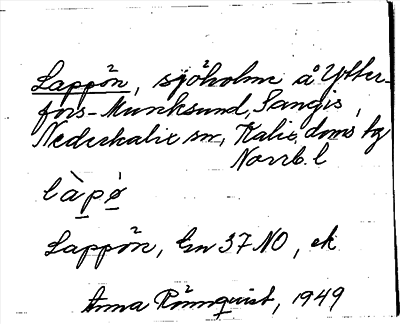 Lappön, sjöholme å Ytter-
fors-Munksund, Sangis,
Nederkalix sn, Kalix doms bg
Norrb. l
làpø
Lappön, En 37 NO, ek
Anna Rönnquist, 1949